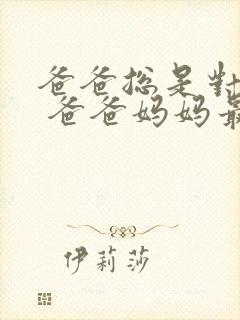 爸爸总是对
爸爸妈妈最
伊莉莎